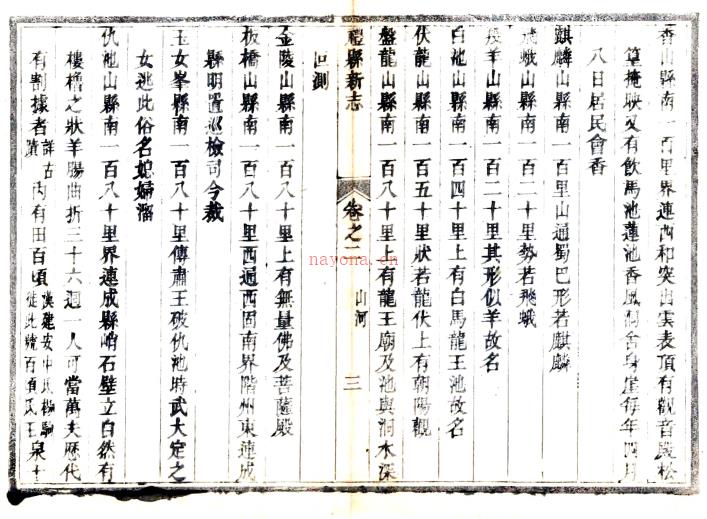 香山縣南一百里界連西和突出雲表頂有觀音殿松
篁掩映又有飲馬池蓮池香風洞舍身崖每年四月
八日居民會香
麒麟山縣南一百里山通蜀巴形若麒麟
飛蛾山縣南一百二十里勢若飛蛾
羖羊山縣南一百二十里其形似羊故名
白池山縣南一百四十里上有白馬龍王池故名
伏龍山縣南一百五十里狀若龍伏上有朝陽觀
盤龍山縣南一百八十里上有龍王廟及池與洞水深
禮縣新志 卷之二 山河 三
叵測
金陵山縣南一百八十里上有無量佛及菩薩殿
板橋山縣南一百八十里西通西固南界階州東連成
縣明置巡檢司今裁
玉女峯縣南一百八十里傳肅王破仇池時武大定之
女逃此俗名媳婦溜
仇池山縣南一百八十里界連成縣峭石壁立自然有
樓櫓之狀羊腸曲折三十六迴一人可當萬夫歷代
有割據者詳古蹟內有田百頃漢建安中氐楊駒徙此號百頃氐王泉十
nayona.cn